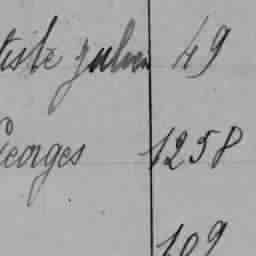 tiste Julien 49
Georges 1258
109